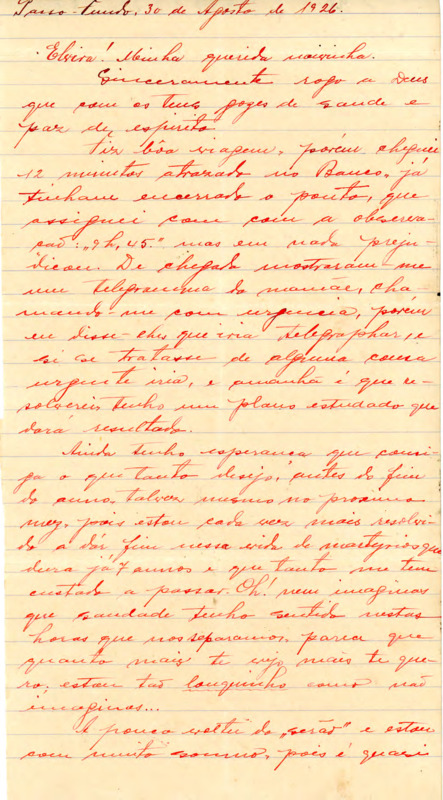 Passo Fundo, 30 de Agosto de 1926.
Elvira! Minha querida noivinha.
Sinceramente rogo a Deus
que com os teus gozes de saude e
paz de espirito.
Fiz bôa viagem, porém cheguei
12 minutos atrazado no Banco, já
tinham encerrado o ponto, que
assignei com com a observa-
cão: "9h,45." mas em nada preju-
dicou. De chegada mostraram-me
um telegramma da mamãe, cha
mando-me com urgencia, porém
eu disse-lhes que iria telegraphar, e
si se tratasse de alguma cousa
urgente iria, e amanhã é que re-
solverei, tenho um plano estudado que
dará resultado.
Ainda tenho esperança que consi-
ga o que tanto desejo, antes do fim
do anno, talvez mesmo no proximo
mez, pois estou cada vez mais resolvi-
do a dár fim nessa vida de martyrios que
dura já 7 annos e que tanto me tem
custado a passar. Oh! nem imaginas
que saudade tenho sentido nestas
horas que nos separamos, parece que
quanto mais te vejo mais te que-
ro; estou tão louquinho como não
imaginas...
A pouco voltei do "serão" e estou
com muito somno, pois é quasi